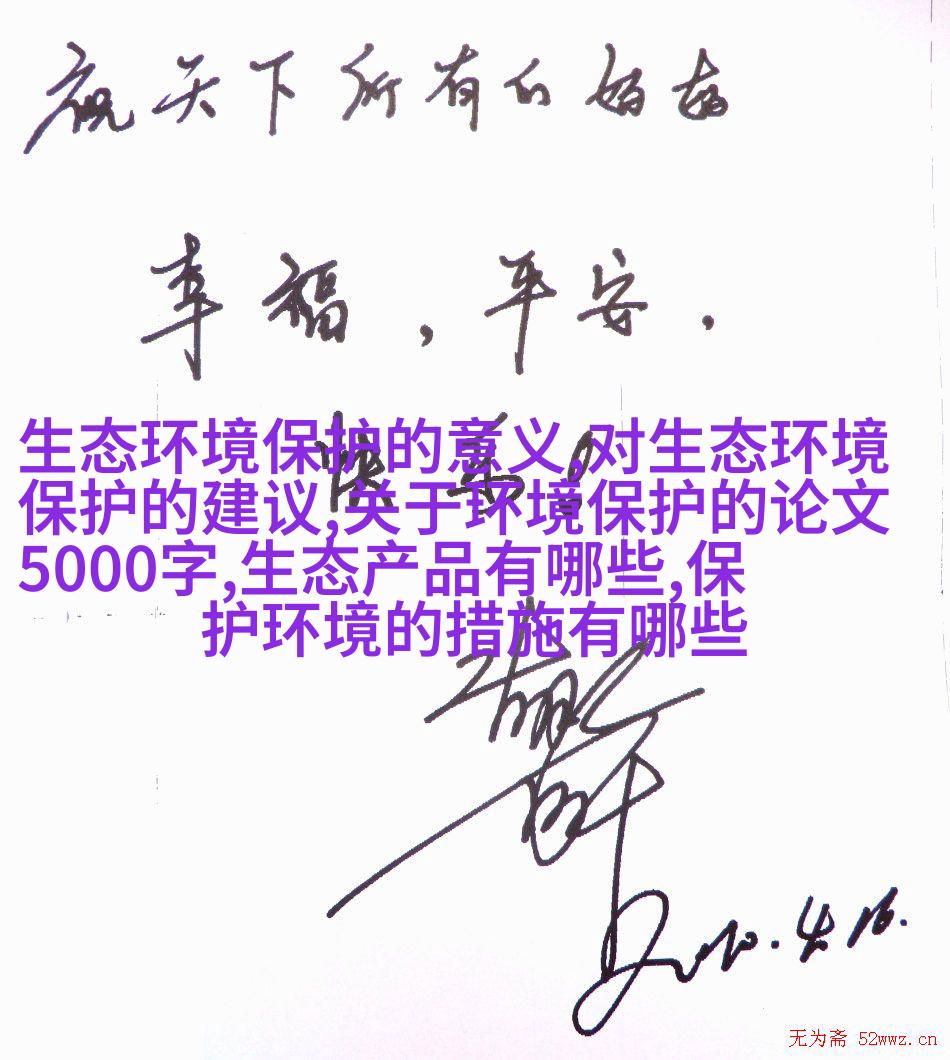 祝天下所有的妈妈
幸福，平安，
生态环境保护的意义,对生态环境
保护的建议,关于环境保护的论文
5000字,生态产品有哪些,保
护环境的措施有哪些
2010.4.16.
无为斋 52wwz.cn